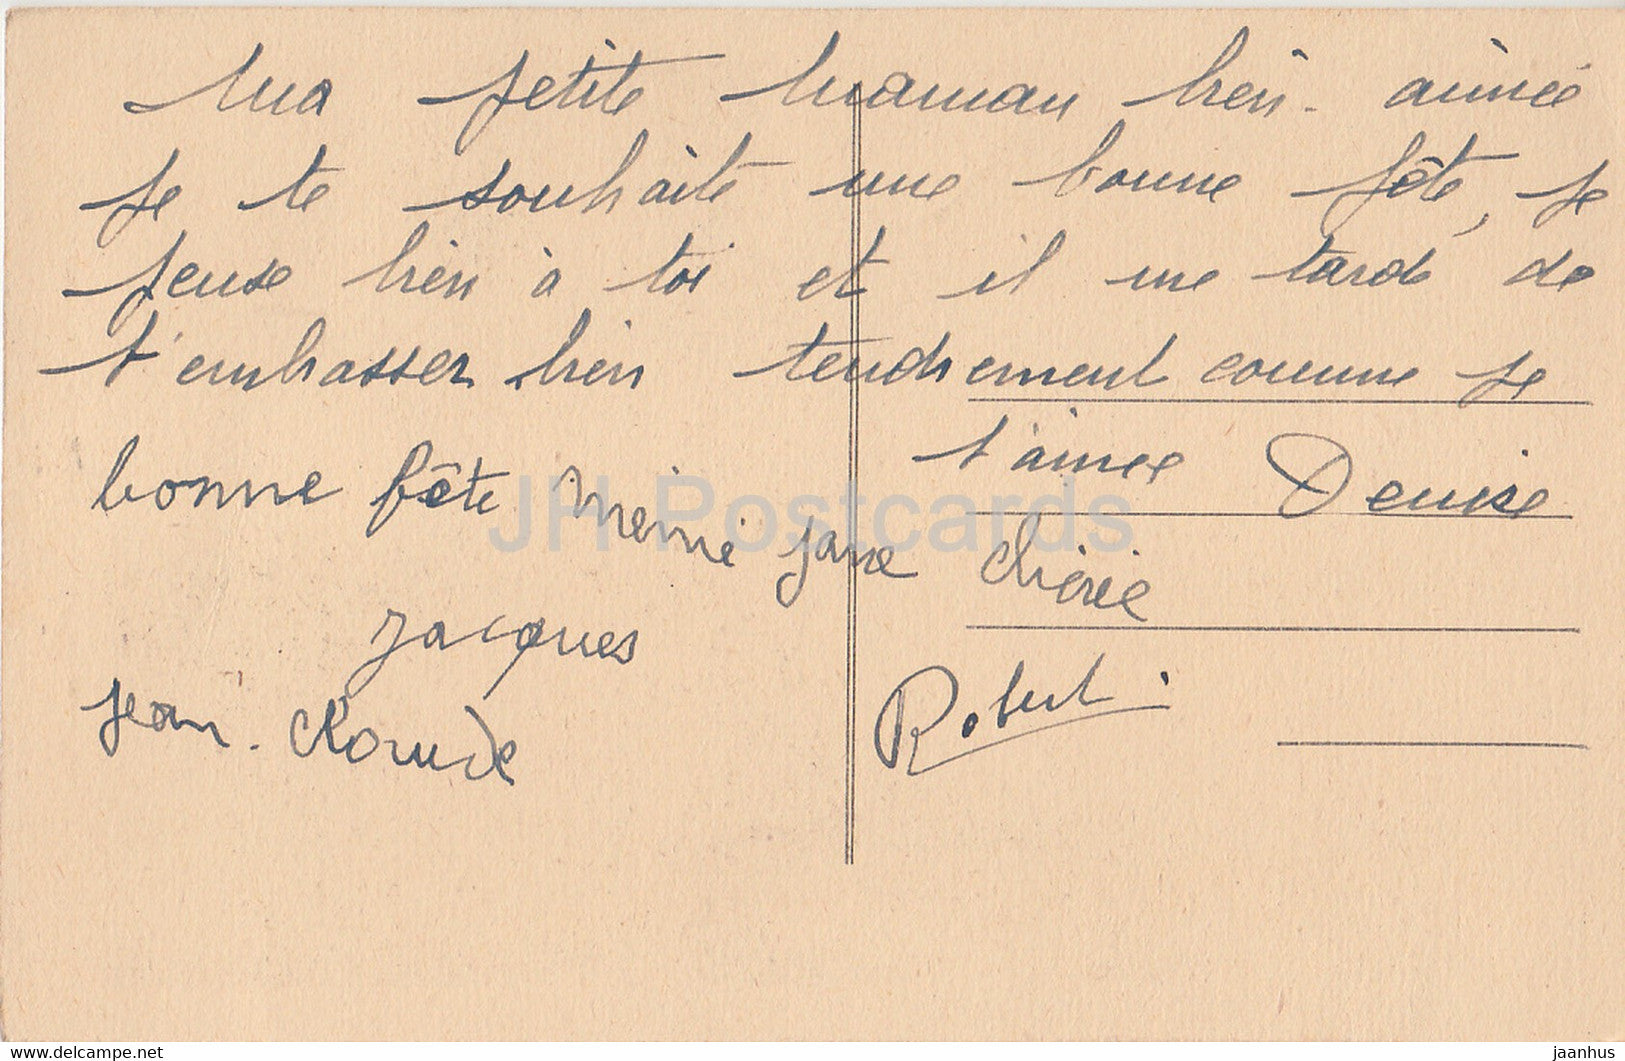 Ma petite maman bien-aimée
je te souhaite une bonne fête, je
pense bien à toi et il me tarde de
t'embrasser bien tendrement comme je
t'aime Denise
bonne fête mémé Jane chérie
Jacques
Jean-Claude
Robert.
JH Postcards
www.delcampe.net
jaanhus